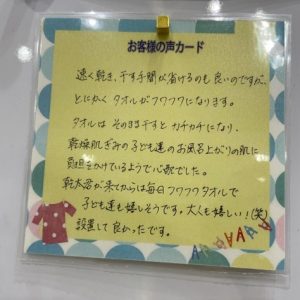 お客様の声カード
速く乾き、干す手間が省けるのも良いのですが、
とにかくタオルがフワフワになります。
タオルはそのまま干すとカチカチになり、
乾燥肌ぎみの子ども達のお風呂上がりの肌に
負担をかけているようで心配でした。
乾太君が来てからは毎日フワフワタオルで
子ども達も嬉しそうです。大人も嬉しい!(笑)
設置して良かったです。